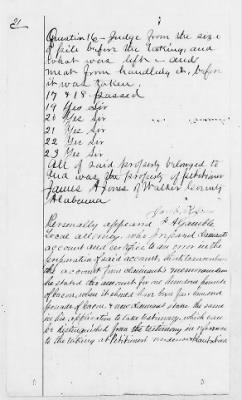 21
Question 16 - Judge from the size
of pile before the taking, and
what was left - and
meat from handling it, before
it was taken.
17 & 18 passed
19 Yes Sir
20 Yes Sir
21 Yes Sir
22 Yes Sir
23 Yes Sir
All of said property belonged to
and was the property of petitioner
James A Jones of Walker County
Alabama
Personally appeared F A Gamble
Local attorney, who prepared claimants
account and certifies to an error in the
preparation of said account, that
the account from claimants memorandum
he stated the amount for one hundred pounds
of bacon, when it should have been four hundred
pounds of bacon & now claimant states the same
in his application to take testimony, which can
be distinguished from the testimony in reference
to the taking